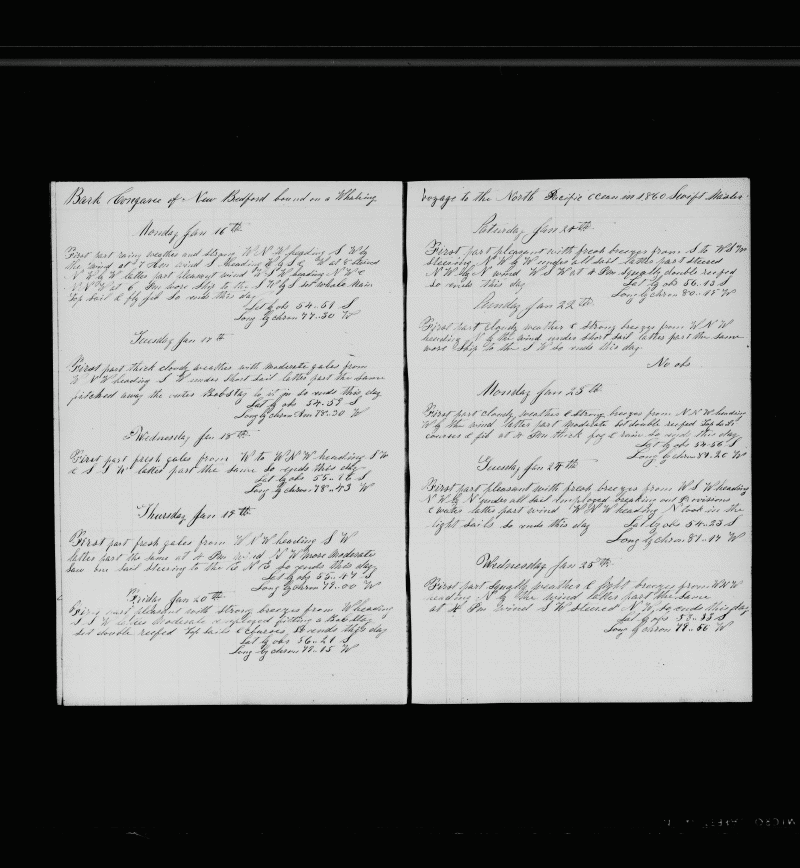 Bark Congaree of New Bedford bound on a Whaling
Monday Jan 16th
First part rainy weather and strong W N W heading S W by
the wind at 7 Am wind S heading E by S at 8 steered
N W by W latter part pleasant wind S W heading N W
N N W at 6 Pm wore ship to the S W by S set whole Main
Top sail & fly jib So ends this day
Lat by obs 54..51 S
Long by chron 77..30 W
Tuesday Jan 17th
First part thick cloudy weather with moderate gales from
W N W heading S W under short sail latter part the same
pitched away the Bobstay so ends this day
Lat by obs 54..59 S
Long by chron 78..30 W
Wednesday Jan 18th
First part fresh gales from W to W N W heading S W
& S S W latter part the same So ends this day
Lat by obs 55..16 S
Long by chron 78..43 W
Thursday Jan 19th
First part fresh gales from W N W heading S W
latter part the same at 4 Pm wind N W more moderate
saw one sail steering to the E N E So ends this day
Lat by obs 55..47 S
Long by chron 79..00 W
Friday Jan 20th
First part pleasant with strong breezes from W heading
S S W moderate employed fitting a Bobstay
set double reefed Top sails & courses, So ends this day
Lat by obs 56..21 S
Long by chron 79..15 W
voyage to the North Pacific ocean in 1860 Swift Master
Saturday Jan 20th
First part pleasant with fresh breezes from S to W S W
steering N W by W under all sail latter part steered
N W by N wind W S W at 4 Pm squally double reefed
so ends this day Lat by obs 56..13 S
Long by chron 80..15 W
Sunday Jan 22th
First part cloudy weather & strong breezes from W N W
heading N by the wind under short sail latter part the same
wore ship to the S W So ends this day
No obs
Monday Jan 23th
First part cloudy weather & strong breezes from N N W heading
W by the wind latter part moderate set double reefed Top sails
courses & jib at 4 Pm thick fog & rain So ends this day
Lat by obs 54..56 S
Long by chron 81..20 W
Tuesday Jan 24th
First part pleasant with fresh breezes from W S W heading
N W by N under all sail Employed breaking out Provisions
& water latter part wind W N W heading N took in the
light sails So ends this day Lat by obs 54..23 S
Long by chron 81..14 W
Wednesday Jan 25th
First part squally weather & light breezes from W N W
heading N by the wind latter part the same
at 4 Pm wind S W steered N W, So ends this day
Lat by obs 53..33 S
Long by chron 79..56 W